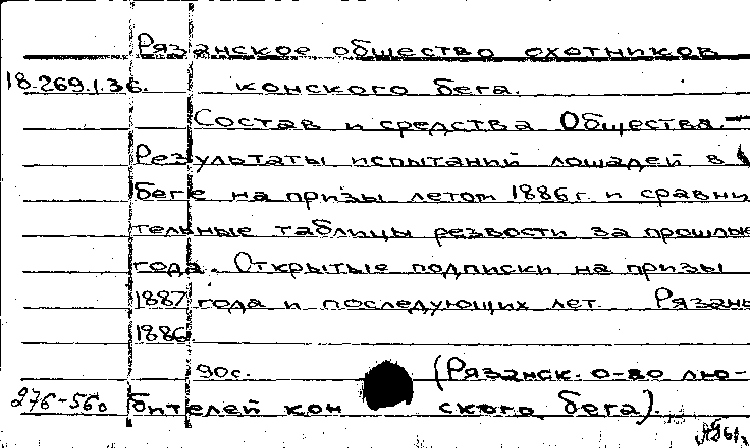 Рязанское общество охотников
18.269.1.36. конского бега.
Состав и средства Общества.—
Результаты испытаний лошадей в
беге на призы летом 1886 г. и сравни
тельные таблицы резвости за прошлые
года. Открытые подписки на призы
1887 года и последующих лет. Рязань
1886.
90с. (Рязанск. о-во лю-
276-56 бителей конского бега).